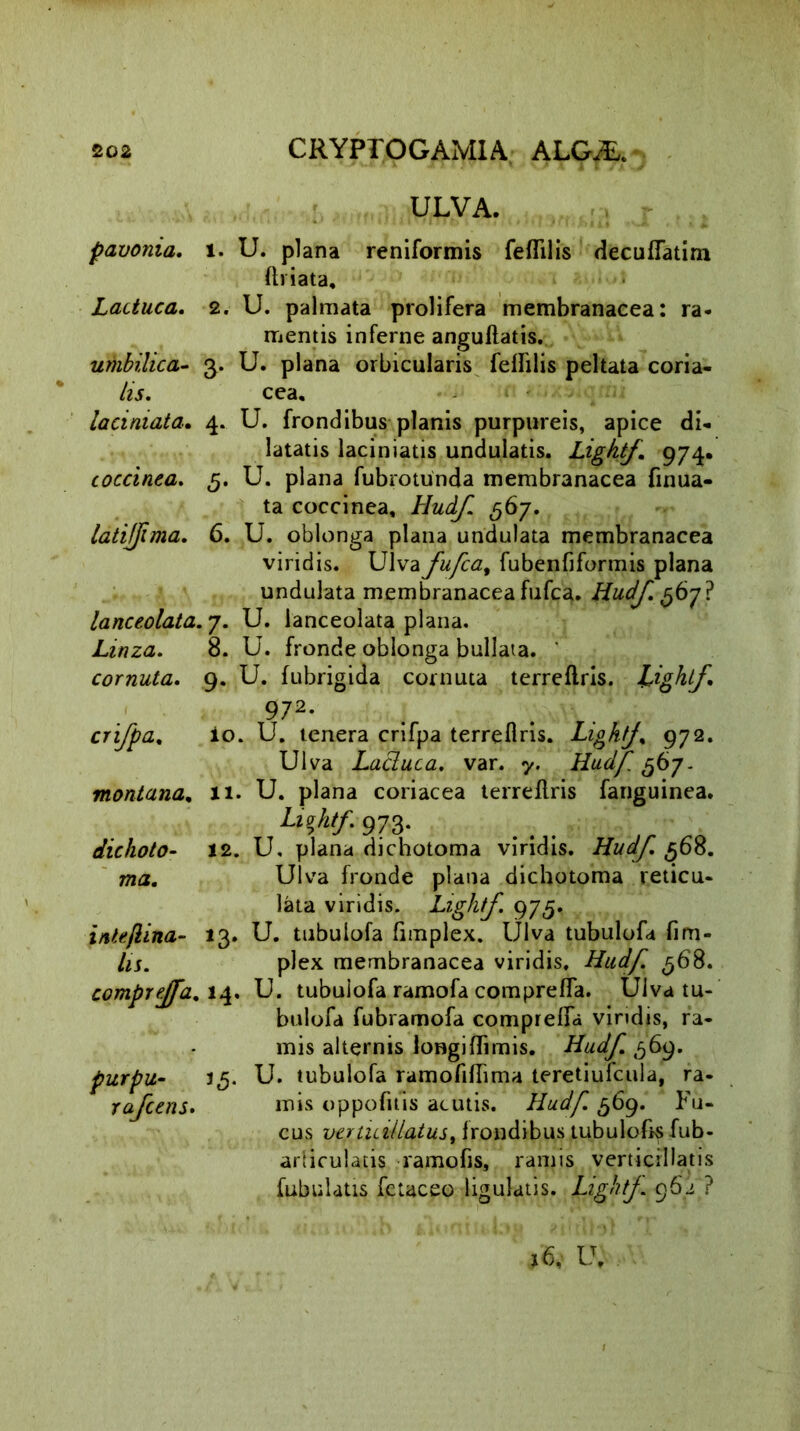 202 CRYPTOGAMIA ALGÆ.
ULVA.
pavonia. 1. U. plana reniformis ſeſſilis decuſſatim
ſtriata.
Lactuca. 2. U. palmata prolifera membranacea: ra-
mentis inferne anguſtatis.
umbilica- 3. U. plana orbicularis ſeſſilis peltata coria-
lis. cea.
laciniata. 4. U. frondibus planis purpureis, apice di-
latatis laciniatis undulatis. Lightf. 974.
coccinea. 5. U. plana ſubrotunda membranacea ſinua-
ta coccinea, Hudſ. 567.
latiſſima. 6. U. oblonga plana undulata membranacea
viridis. Ulva fuſca, ſubenſiformis plana
undulata membranacea fuſca. Hudſ. 567?
lanceolata. 7. U. lanceolata plana.
Linza. 8. U. fronde oblonga bullata.
cornuta. 9. U. ſubrigida cornuta terreſtris. Lightf.
972.
criſpa. 10. U. tenera criſpa terreſtris. Lightf. 972.
Ulva Lactuca. var. γ. Hudſ. 567.
montana. 11. U. plana coriacea terreſtris ſanguinea.
Lightf. 973.
dichoto- 12. U. plana dichotoma viridis. Hudſ. 568.
ma. Ulva fronde plana dichotoma reticu-
lata viridis. Lightf. 975.
inteſtina- 13. U. tubuloſa ſimplex. Ulva tubuloſa ſim-
lis. plex membranacea viridis. Hudſ. 568.
compreſſa. 14. U. tubuloſa ramoſa compreſſa. Ulva tu-
buloſa ſubramoſa compreſſa viridis, ra-
mis alternis longiſſimis. Hudſ. 569.
purpu- 15. U. tubuloſa ramoſiſſima teretiuſcula, ra-
raſcens. mis oppoſitis acutis. Hudſ. 569. Fu-
cus verticillatus, frondibus tubuloſis ſub-
articulatis ramoſis, ramis verticillatis
ſubulatis ſetaceo ligulatis. Lightf. 962 ?
16. U.